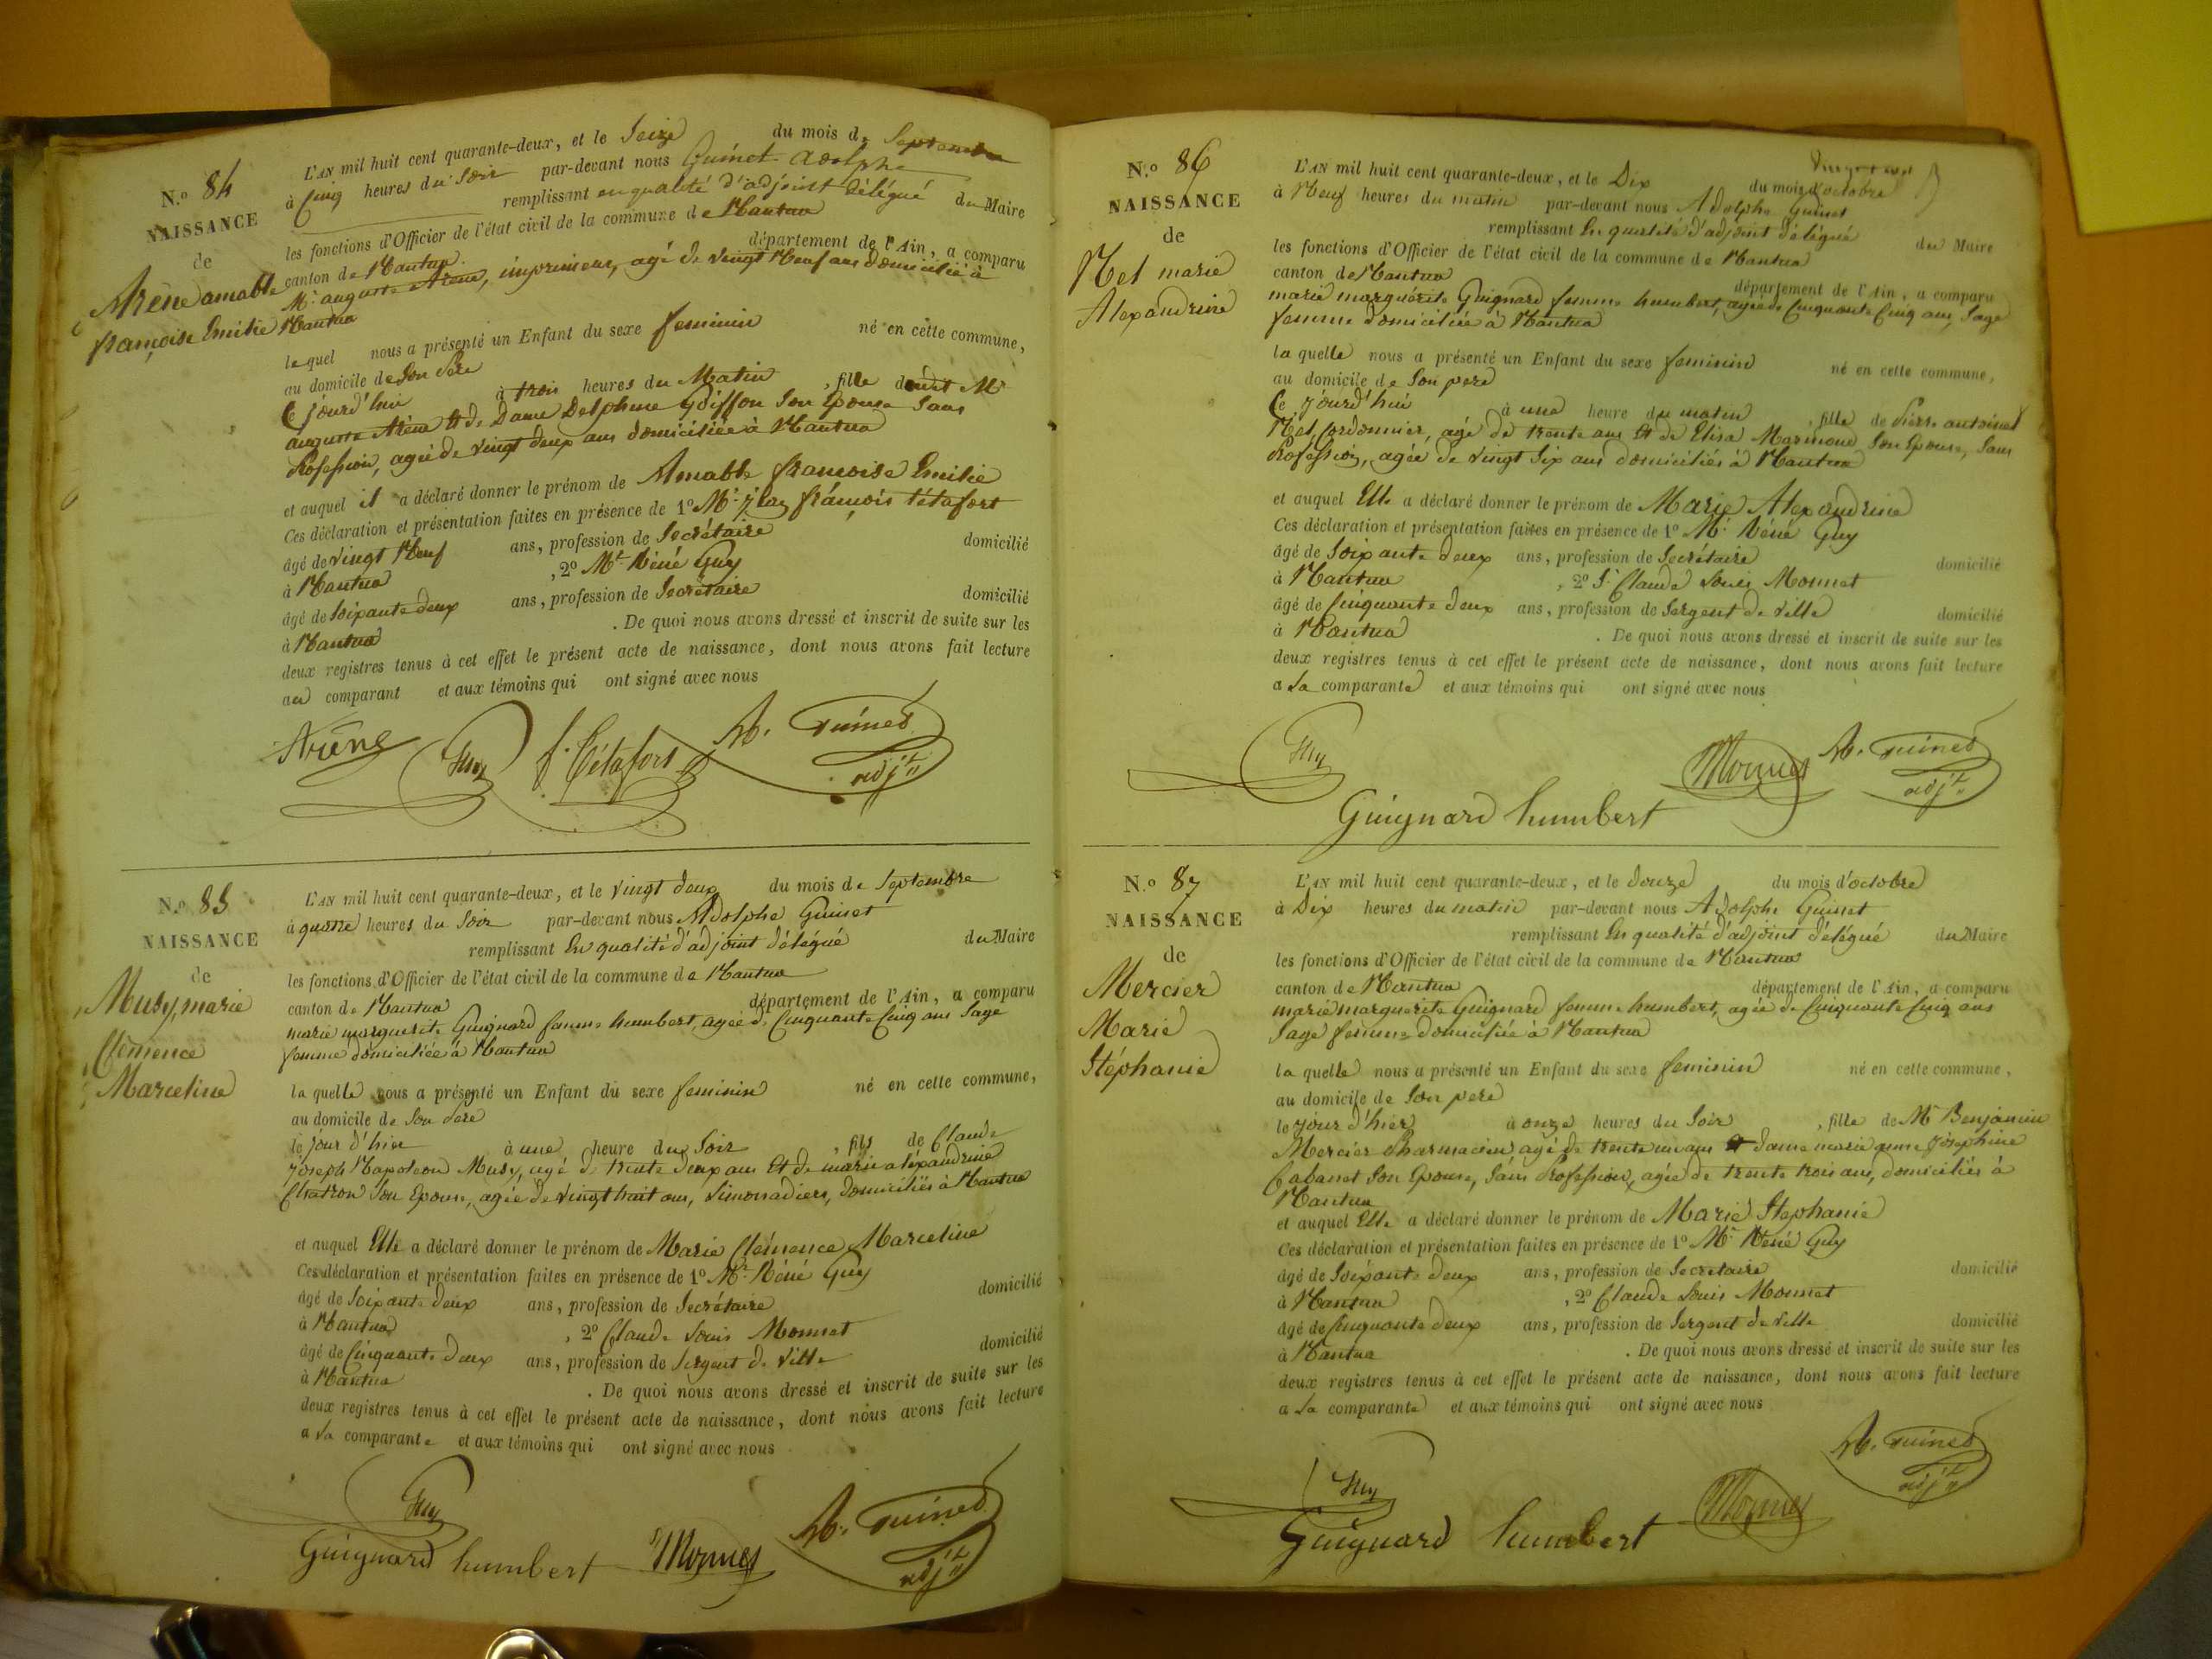 N.º 84
NAISSANCE
de
Arène amable
françoise Emilie
L'AN mil huit cent quarante-deux, et le Seize du mois de Septembre
à cinq heures du soir par-devant nous Guinet adolphe
remplissant en qualité d'adjoint délégué du Maire
les fonctions d'Officier de l'état civil de la commune de Nantua
canton de Nantua département de l'Ain, a comparu
Mr. auguste Arène, imprimeur, agé de vingt Neuf ans domicilié à
Nantua
lequel nous a présenté un Enfant du sexe feminin né en cette commune,
au domicile de Son Père
Ce jourd'hui à trois heures du Matin, fille dudit Mr
auguste Arène Et de Dame Delphine Son Epouse Sans
Profession, agée de vingt deux ans domiciliée à Nantua
et auquel il a déclaré donner le prénom de Amable françoise Emilie
Ces déclaration et présentation faites en présence de 1º Mr. Jean françois Tétafort
âgé de vingt Neuf ans, profession de Secrétaire domicilié
à Nantua, 2º Mr. Réné Guy
âgé de Soixante deux ans, profession de Secrétaire domicilié
à Nantua. De quoi nous avons dressé et inscrit de suite sur les
deux registres tenus à cet effet le présent acte de naissance, dont nous avons fait lecture
au comparant et aux témoins qui ont signé avec nous
Arène Guy f. Tétafort A. Guinet
adjt
N.º 85
NAISSANCE
de
Musy, marie
Clémence
Marceline
L'AN mil huit cent quarante-deux, et le vingt deux du mois de Septembre
à quatre heures du Soir par-devant nous Adolphe Guinet
remplissant En qualité d'adjoint délégué du Maire
les fonctions d'Officier de l'état civil de la commune de Nantua
canton de Nantua département de l'Ain, a comparu
marie marguerite Guignard femme humbert, agée de Cinquante Cinq ans Sage
femme domiciliée à Nantua
laquelle nous a présenté un Enfant du sexe feminin né en cette commune,
au domicile de Son Père
le jour d'hier à une heure du Soir, fils de Claude
Joseph Napoléon Musy, agé de trente deux ans Et de marie aléxandrine
Chatron Son Epouse, agée de vingt huit ans, Limonadiers, domiciliés à Nantua
et auquel Elle a déclaré donner le prénom de Marie Clémence Marceline
Ces déclaration et présentation faites en présence de 1º Mr. Réné Guy
âgé de Soixante deux ans, profession de Secrétaire domicilié
à Nantua, 2º Claude Louis Monnet
âgé de Cinquante deux ans, profession de Sergent de Ville domicilié
à Nantua. De quoi nous avons dressé et inscrit de suite sur les
deux registres tenus à cet effet le présent acte de naissance, dont nous avons fait lecture
a La comparante et aux témoins qui ont signé avec nous
Guy
Guignard humbert Monnet A. Guinet
adjt
N.º 86
NAISSANCE
de
Net marie
Alexandrine
L'AN mil huit cent quarante-deux, et le Dix du mois d'octobre
à Neuf heures du matin par-devant nous Adolphe Guinet
remplissant En qualité d'adjoint délégué du Maire
les fonctions d'Officier de l'état civil de la commune de Nantua
canton de Nantua département de l'Ain, a comparu
marie marguérite Guignard femme humbert, agée de Cinquante Cinq ans, Sage
femme domiciliée à Nantua
laquelle nous a présenté un Enfant du sexe feminin né en cette commune,
au domicile de Son pere
Ce Jourd'hui à une heure du matin, fille de Pierre antoine
Net, Cordonnier, agé de trente ans Et de Elisa Marmond Son Epouse, Sans
Profession, agée de vingt Six ans domiciliés à Nantua
et auquel Elle a déclaré donner le prénom de Marie Alexandrine
Ces déclaration et présentation faites en présence de 1º Mr. Réné Guy
âgé de Soixante deux ans, profession de Secrétaire domicilié
à Nantua, 2º Sr. Claude Louis Monnet
âgé de Cinquante deux ans, profession de Sergent de Ville domicilié
à Nantua. De quoi nous avons dressé et inscrit de suite sur les
deux registres tenus à cet effet le présent acte de naissance, dont nous avons fait lecture
a La comparante et aux témoins qui ont signé avec nous
Guy Monnet A. Guinet
adjt
Guignard humbert
N.º 87
NAISSANCE
de
Mercier
Marie
Stéphanie
L'AN mil huit cent quarante-deux, et le douze du mois d'octobre
à Dix heures du matin par-devant nous Adolphe Guinet
remplissant En qualité d'adjoint délégué du Maire
les fonctions d'Officier de l'état civil de la commune de Nantua
canton de Nantua département de l'Ain, a comparu
marie marguerite Guignard femme humbert, agée de Cinquante Cinq ans
Sage femme domiciliée à Nantua
laquelle nous a présenté un Enfant du sexe feminin né en cette commune,
au domicile de Son pere
le jour d'hier à onze heures du Soir, fille de Mr Benjamin
Mercier Pharmacien agé de trente un ans Et dame marie anne Joséphine
Cabanet Son Epouse, Sans Profession, agée de trente trois ans, domiciliés à
Nantua
et auquel Elle a déclaré donner le prénom de Marie Stephanie
Ces déclaration et présentation faites en présence de 1º Mr. Réné Guy
âgé de Soixante deux ans, profession de Secretaire domicilié
à Nantua, 2º Claude Louis Monnet
âgé de Cinquante deux ans, profession de Sergent de Ville domicilié
à Nantua. De quoi nous avons dressé et inscrit de suite sur les
deux registres tenus à cet effet le présent acte de naissance, dont nous avons fait lecture
a La comparante et aux témoins qui ont signé avec nous
A. Guinet
adjt
Guy Monnet
Guignard humbert